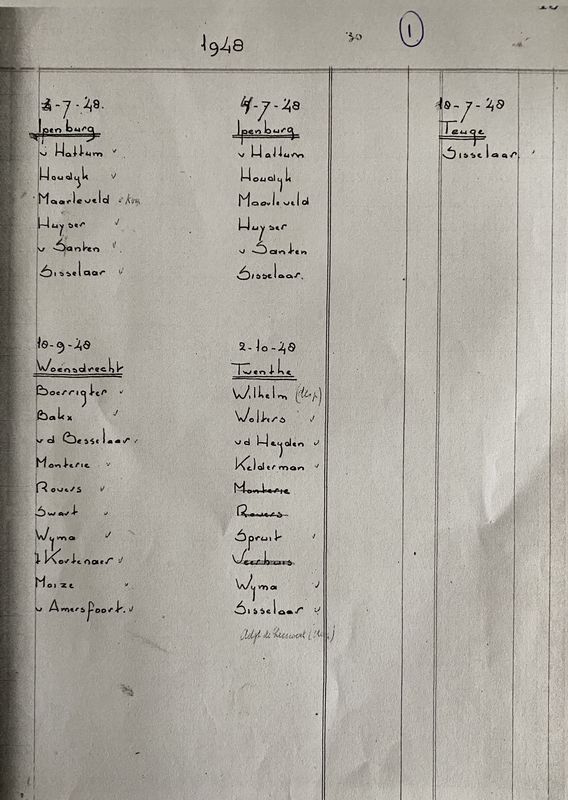 1948
30
1
3-7-'48.
Ipenburg
v Hattum
Houdyk
Maarleveld
Huyser
v Santen
Sisselaar
4-7-'48
Ipenburg
v Hattum
Houdyk
Maarleveld
Huyser
v Santen
Sisselaar.
10-7-'48
Teuge
Sisselaar
10-9-'48
Woensdrecht
Boerrigter
Bakx
vd Besselaar
Monterie
Rovers
Swart
Wyma
't Kortenaer
Moize
v Amersfoort.
2-10-'48
Twenthe
Wilhelm
Wolters
vd Heyden
Kelderman
Monterie
Rovers
Spruit
Veerhuis
Wyma
Sisselaar